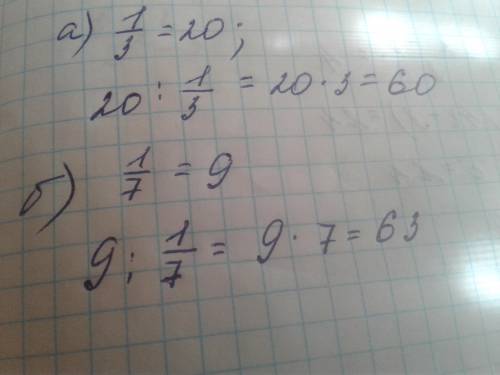 а) 1/3 = 20;
20 : 1/3 = 20 · 3 = 60
б) 1/7 = 9
9 ; 1/7 = 9 · 7 = 63